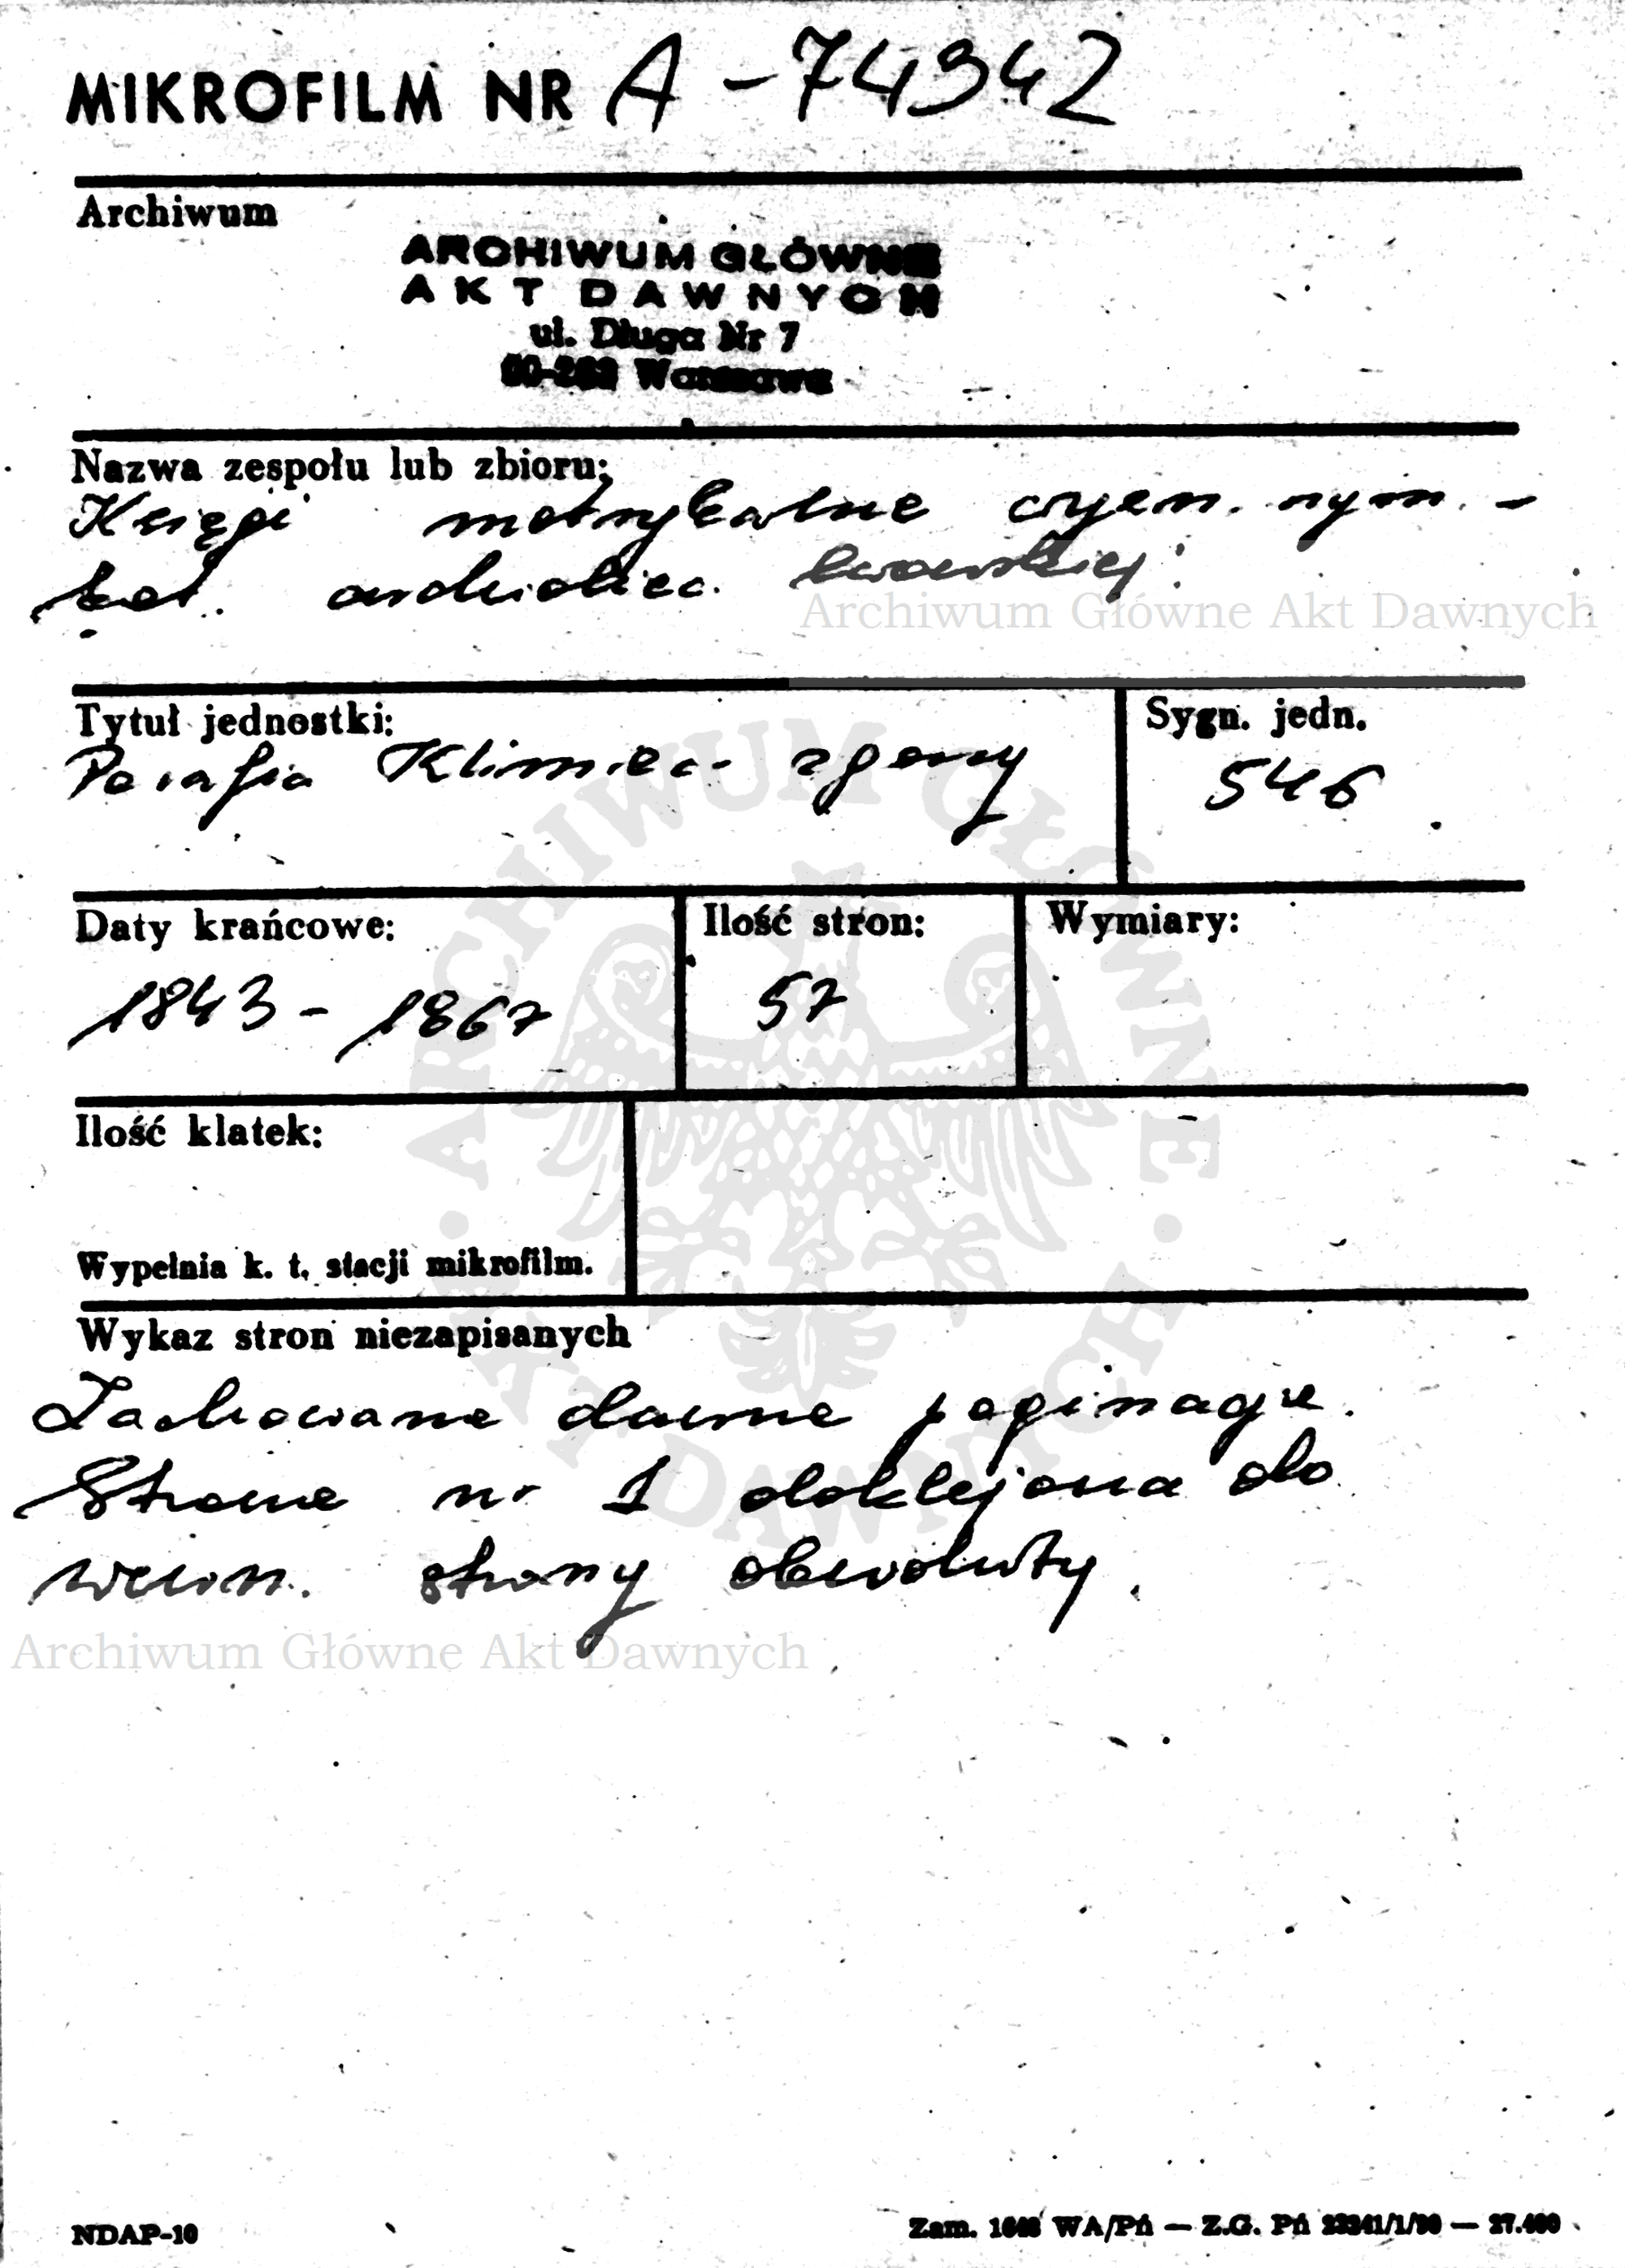 MIKROFILM NR A-74342
Archiwum
ARCHIWUM GŁÓWNE
AKT DAWNYCH
ul. Długa Nr 7
00-263 Warszawa
Nazwa zespołu lub zbioru:
Księgi metrykalne rzym. -
kat. archidiec. lwowskiej
Archiwum Główne Akt Dawnych
Tytuł jednostki:
Sygn. jedn.
Parafia Klimiec zgony
546
Daty krańcowe:
Ilość stron:
Wymiary:
1843 - 1867
57
Ilość klatek:
Wypełnia k. t. stacji mikrofilm.
Wykaz stron niezapisanych
Zachowane dawne paginacje.
Strona nr 1 doklejona do
wewn. strony obwoluty.
Archiwum Główne Akt Dawnych
ARCHIWUM GŁÓWNE AKT DAWNYCH
NDAP-10
Zam. WA/Pń — Z.G. Pń